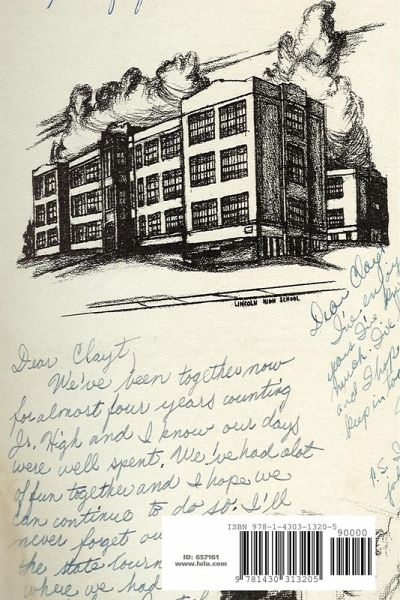 LINCOLN HIGH SCHOOL
Dear Clayt,
We've been together now
for almost four years counting
Jr. High and I know our days
were well spent. We've had alot
of fun together and I hope we
can continue to do so. I'll
never forget ou
the state tourn
where we had
Dear Clayt
I've enjoy
you. I've
much. I've
and I hope
keep in to
P.S. I
ISBN 978-1-4303-1320-5
90000
ID: 657161
www.lulu.com
9 781430 313205